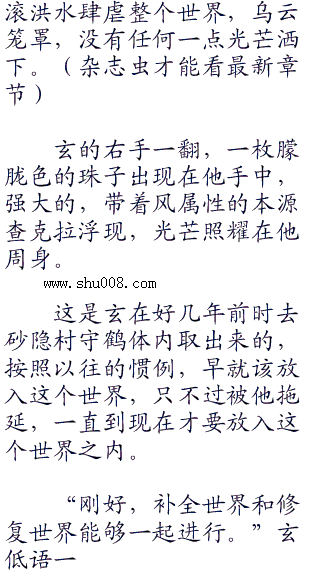 滚洪水肆虐整个世界，乌云
笼罩，没有任何一点光芒洒
下。（杂志虫才能看最新章
节）
玄的右手一翻，一枚朦
胧色的珠子出现在他手中，
强大的，带着风属性的本源
查克拉浮现，光芒照耀在他
周身。
www.shu008.com
这是玄在好几年前时去
砂隐村守鹤体内取出来的，
按照以往的惯例，早就该放
入这个世界，只不过被他拖
延，一直到现在才要放入这
个世界之内。
“刚好，补全世界和修
复世界能够一起进行。”玄
低语一